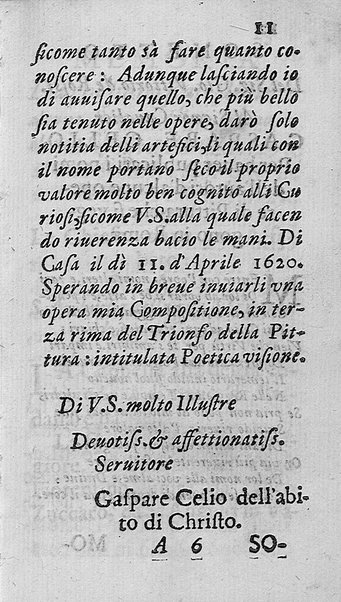 11
ſicome tanto sà fare quanto co-
noſcere : Adunque laſciando io
di auuiſare quello, che più bello
ſia tenuto nelle opere, darò ſolo
notitia delli artefici, li quali con
il nome portano ſeco il proprio
valore molto ben cognito alli Cu
rioſi, ſicome V.S. alla quale facen
do riuerenza bacio le mani. Di
Caſa il dì 11. d'Aprile 1620.
Sperando in breue inuiarli vna
opera mia Compoſitione, in ter-
za rima del Trionfo della Pit-
tura : intitulata Poetica viſione.
Di V.S. molto Illuſtre
Deuotiſſ. & affettionatiſſ.
Seruitore
Gaſpare Celio dell'abi-
to di Chriſto.
A 6 SO-